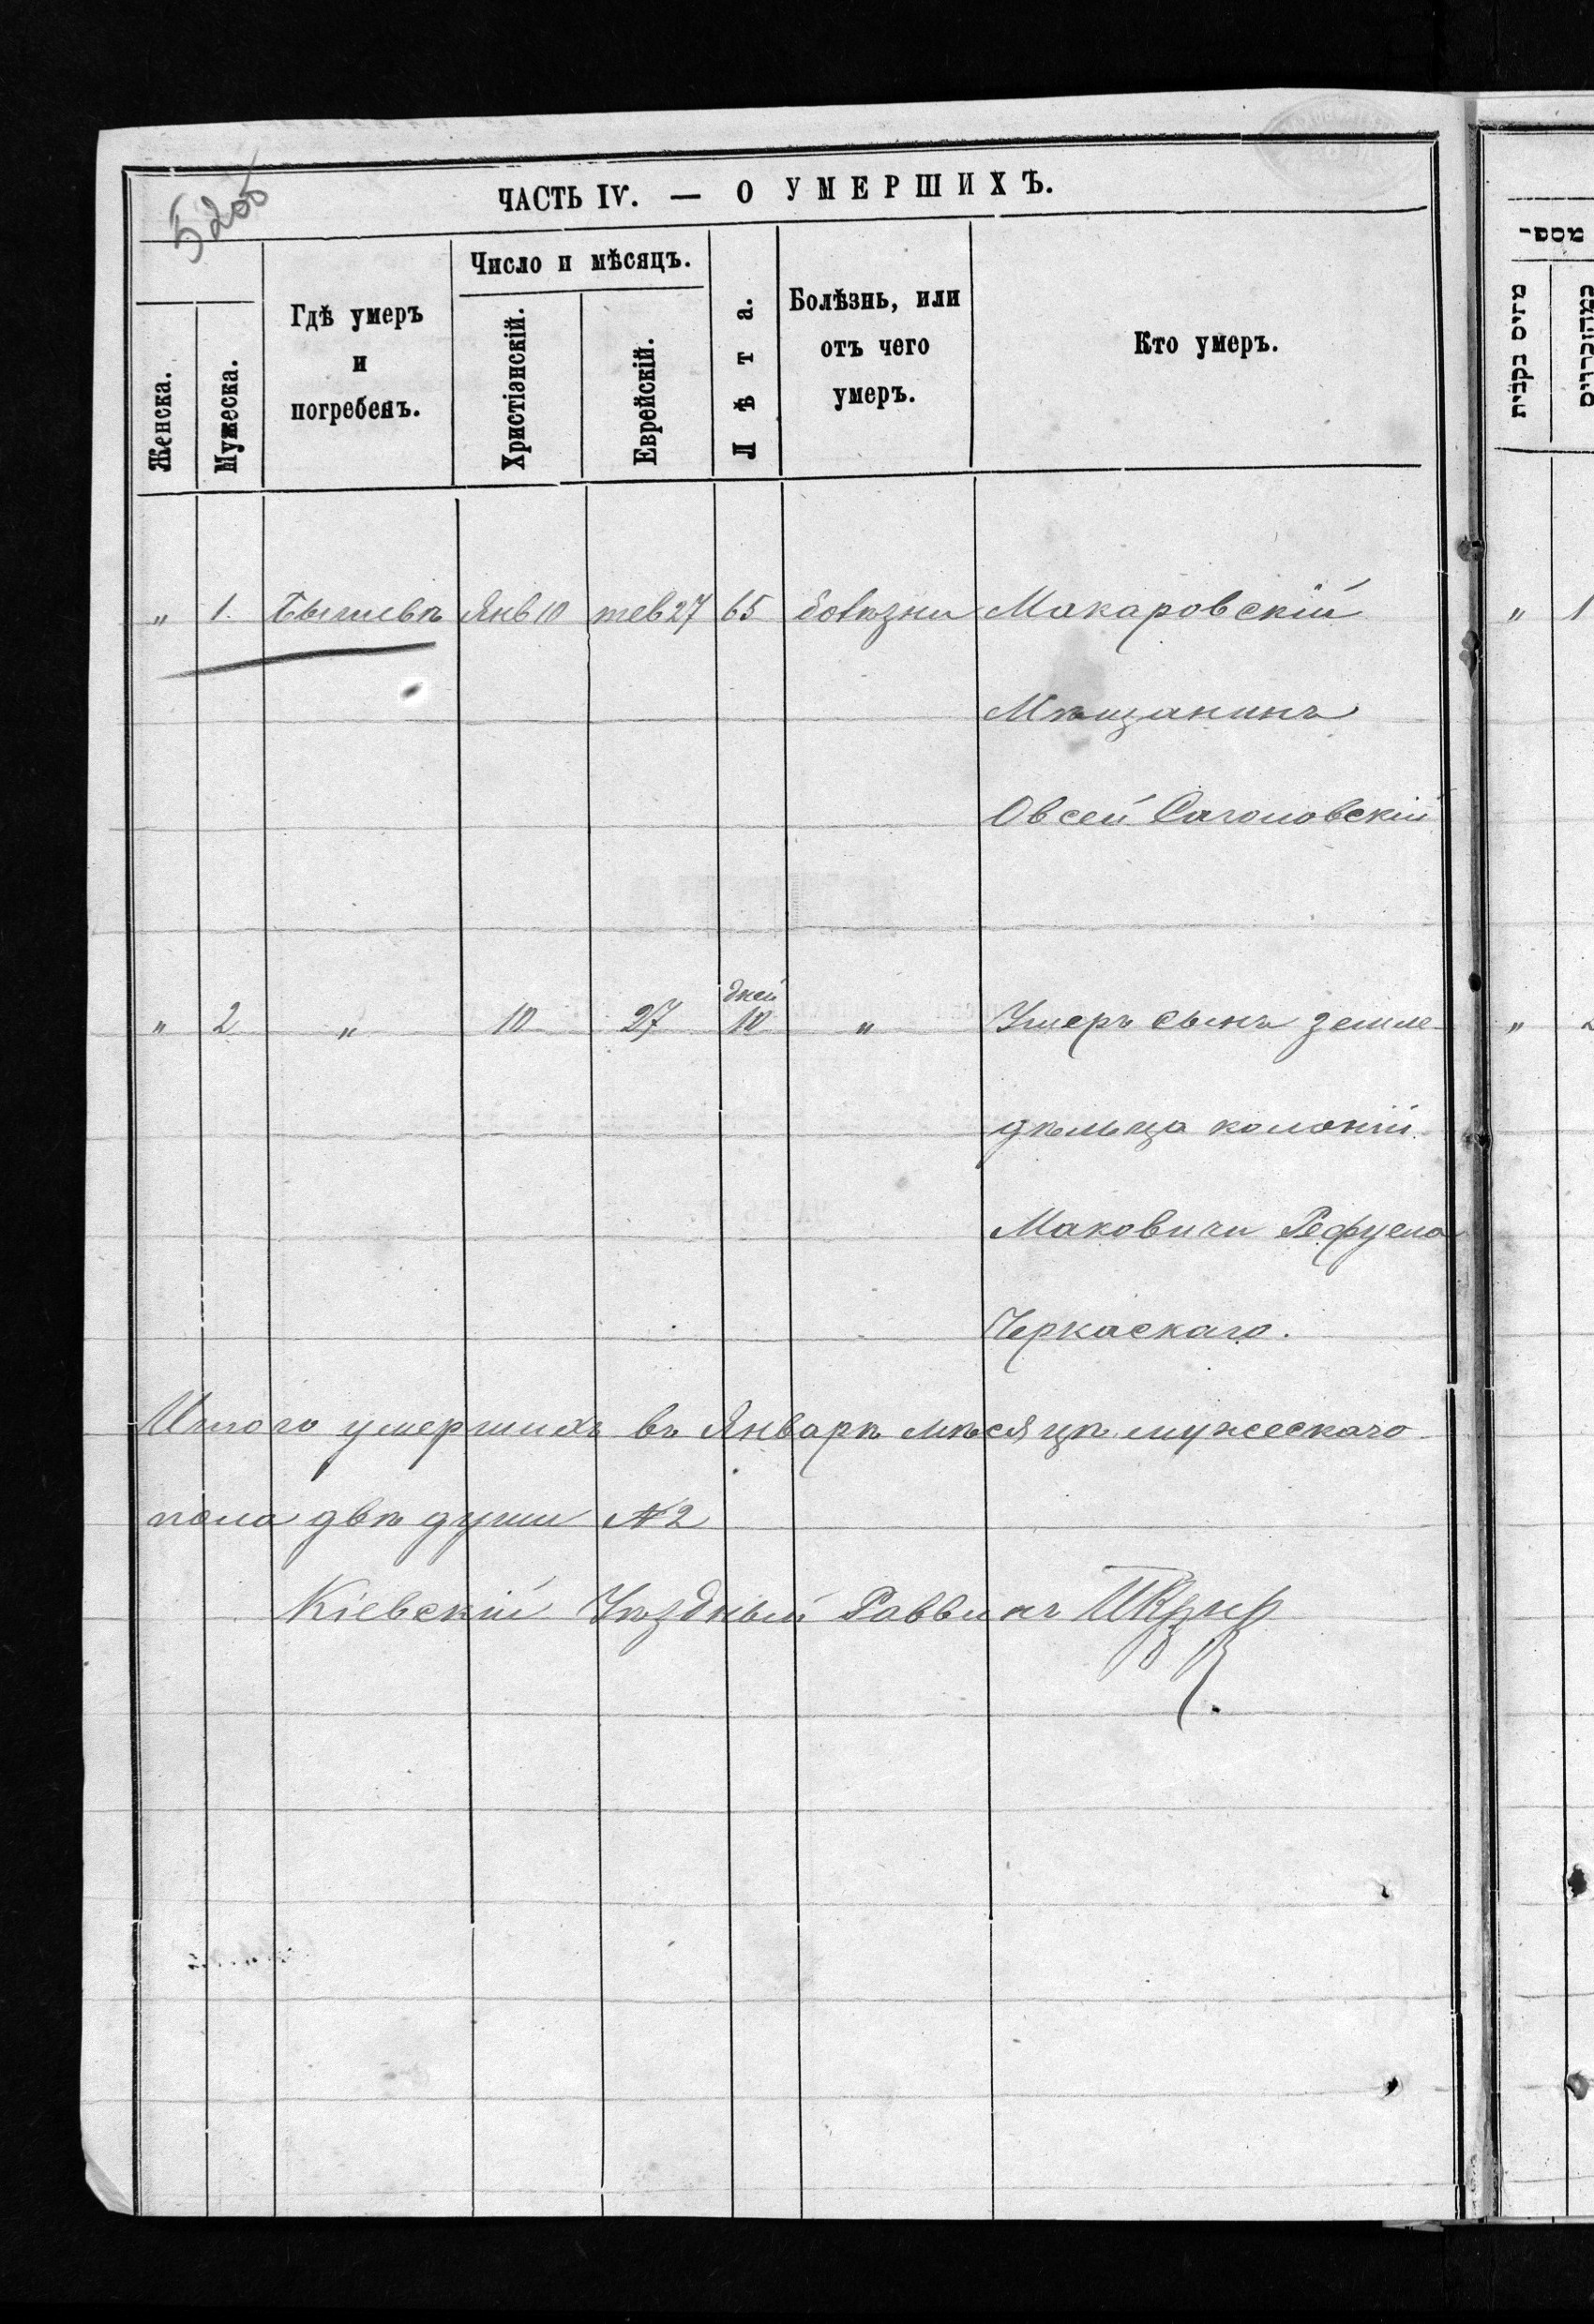 5200
ЧАСТЬ IV. — О УМЕРШИХЪ.
Женска.
Мужеска.
Гдѣ умеръ
и
погребенъ.
Число и мѣсяцъ.
Христіанскій.
Еврейскій.
Лѣта.
Болѣзнь, или
отъ чего
умеръ.
Кто умеръ.
" 1. Бышевѣ Янв 10 тев 27 65 болѣзни Макаровскій
Мѣщанинъ
Овсей
дней
" 2 " 10 27 10 " Умеръ сынъ земле
дѣльца колоній
Маковичи Рефуела
Черкаскаго.
Итого умершихъ въ Январѣ мѣсяцѣ мужескаго
пола двѣ души №2
Кіевскій Уѣздный Раввинъ
מספ־
מזים נקבות
" 1
"